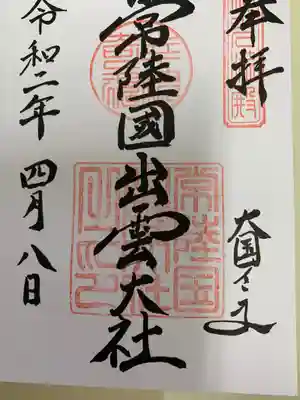 奉拝
大国さま
常陸國出雲大社
常陸国
令和二年 四月八日